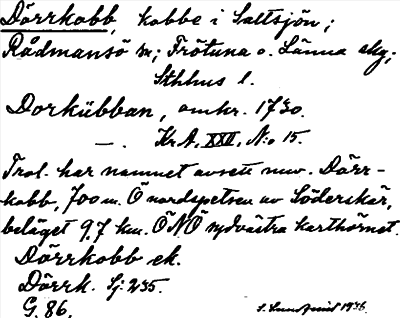 Dörrkobb, kobbe i Saltsjön;
Rådmansö sn; Frötuna o. Länna skg;
Sthlms l.
Dorkübban, omkr. 1730.
—. KrA, XXII, N:o 15.
Trol. har namnet avsett nuv. Dörr-
kobb, 700 m. Ö nordspetsen av Söderskär,
beläget 9,7 km. ÖNÖ sydvästra karthörnet.
Dörrkobb ek.
Dörrk. Sj: 235.
G. 86.
1936.